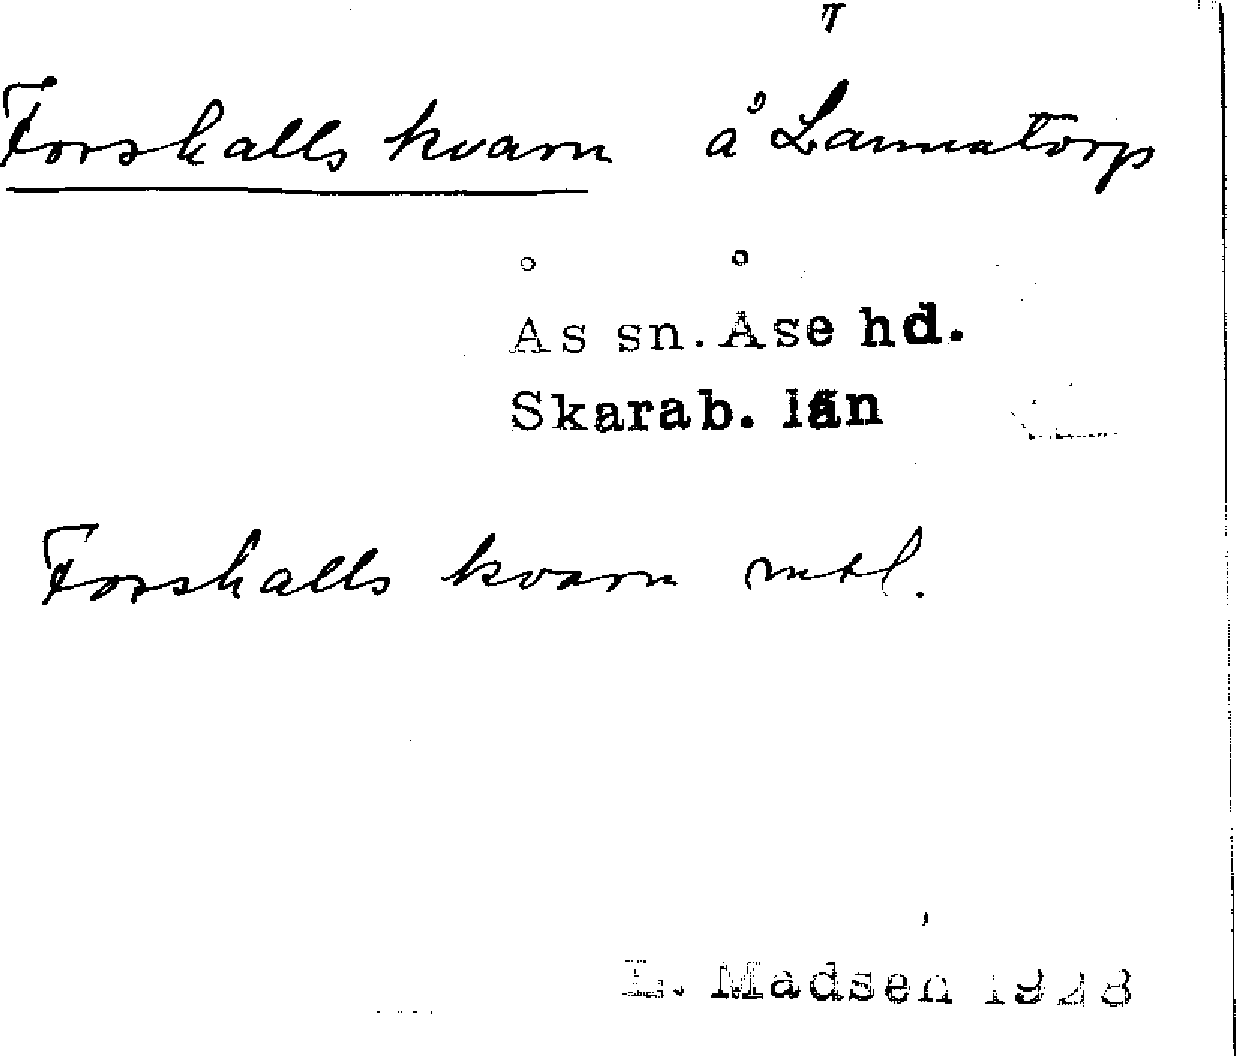 Forshalls kvarn å Lannatorp
Ås sn. Åse hd.
Skarab. län
Forshalls kvarn mtl.
L. Madsen 1928